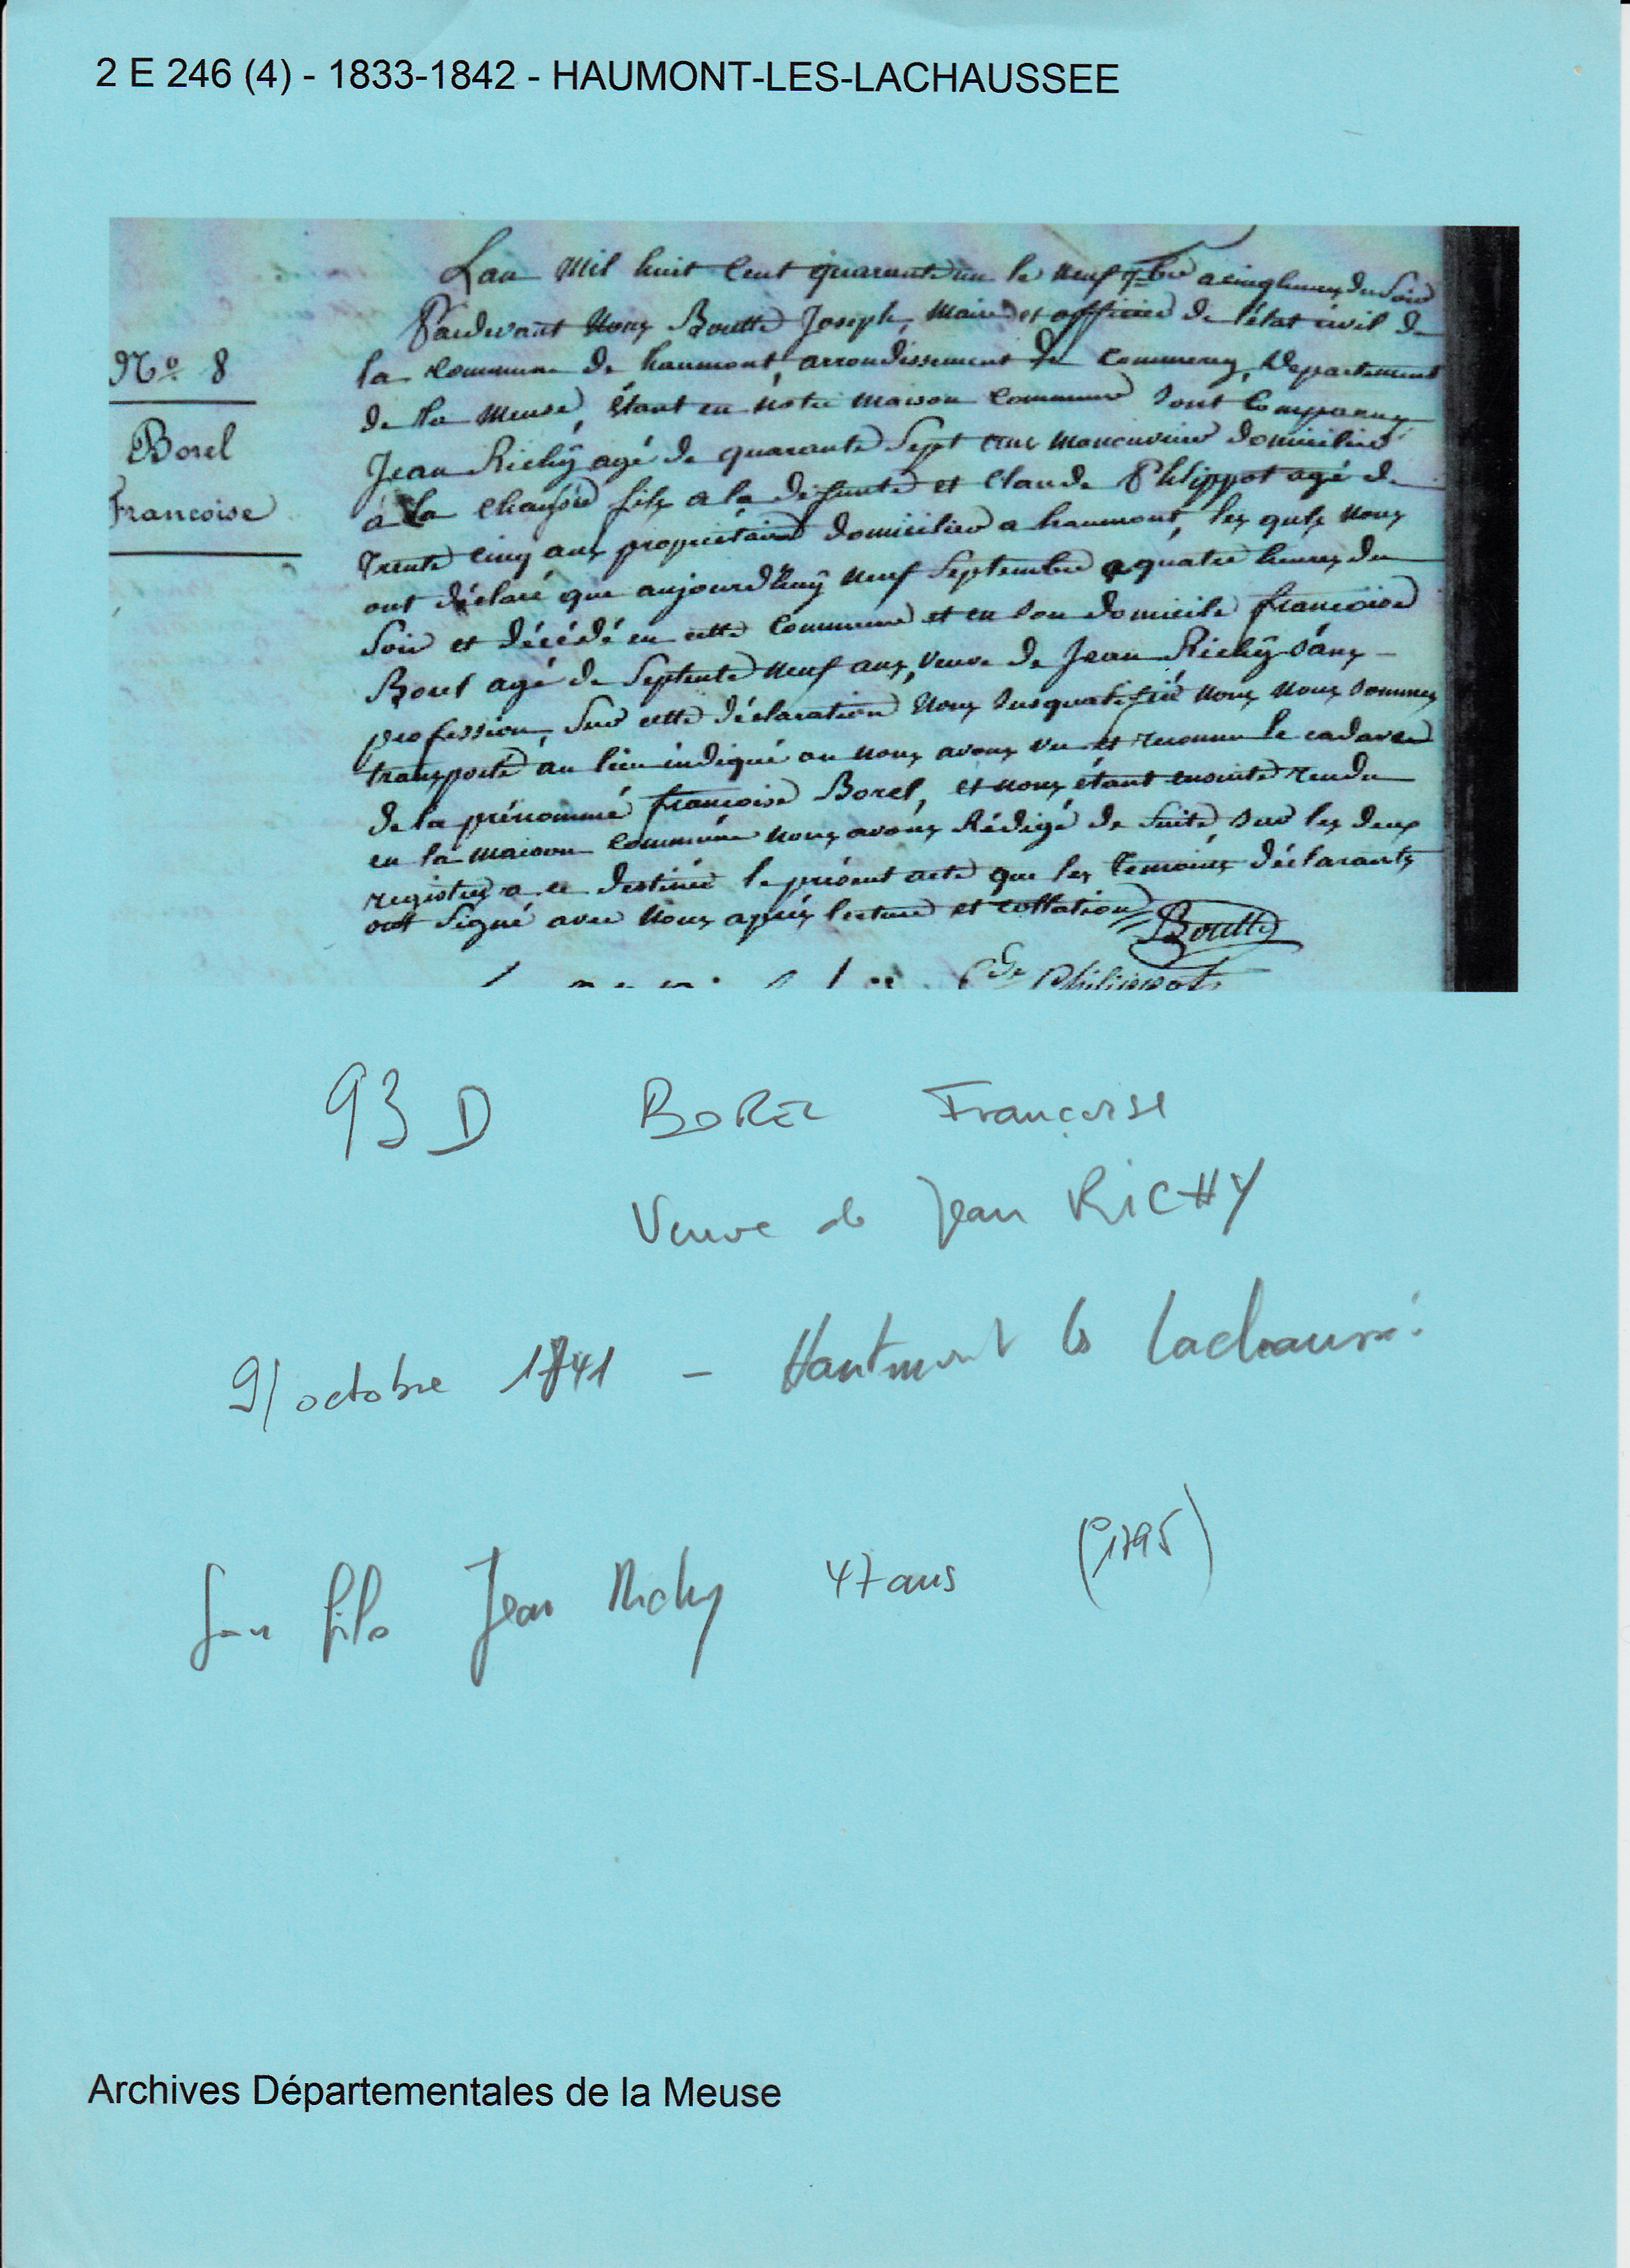 2 E 246 (4) - 1833-1842 - HAUMONT-LES-LACHAUSSEE
Lan Mil huit Cent quarante un le neuf 7bre a cinq heures du Soir
Pardevant Nous Boutté Joseph, Maire et officier de l'état civil de
la Commune de haumont, arrondissement de Commercy, Departement
de la Meuse, étant en notre maison Commune Sont Comparus
Jean Richÿ agé de quarante Sept ans manouvrier domicilié
a La Chaussée fils a la défunte et Claude Philippot agé de
Trente Cinq ans propriétaire domicilié a haumont, les quels Nous
ont déclaré que aujourd'huÿ Neuf Septembre a quatre heures du
Soir et décédé en cette Commune et en Son domicile francoise
Borel agé de Septente Neuf ans, Veuve de Jean Richÿ Sans
profession, Sur cette déclaration Nous Susqualifié Nous Nous Sommes
transporté au lieu indiqué ou nous avons vu et reconnu le cadavre
de la prénommé francoise Borel, et nous étant ensuite rendu
en la maison Commune Nous avons Rédigé de Suite, Sur les deux
registres a ce destiné le présent acte que les Temoins déclarants
ont Signé avec Nous après lecture et collation
Boutté
Cde Philippot
No. 8
Borel
Francoise
93 D BOREL Françoise
Veuve de Jean RICHY
9/ octobre 1841 - Hautmont les Lachaussé
Son fils Jean Richy 47 ans (° 1795)
Archives Départementales de la Meuse